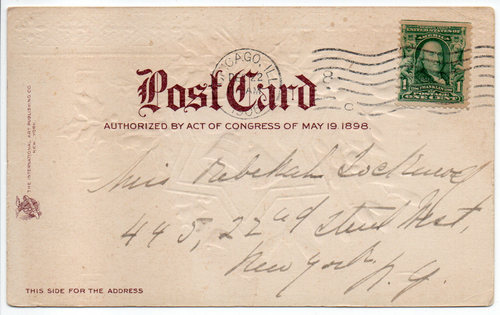 CHICAGO, ILL.
22
8
Post Card
AUTHORIZED BY ACT OF CONGRESS OF MAY 19, 1898.
THE INTERNATIONAL ART PUBLISHING CO.
NEW YORK.
FRANKLIN
POSTAGE
ONE CENT
1 1
Miss Rebekah Lockwood
445, 22nd Street West,
New York. N. Y.
THIS SIDE FOR THE ADDRESS